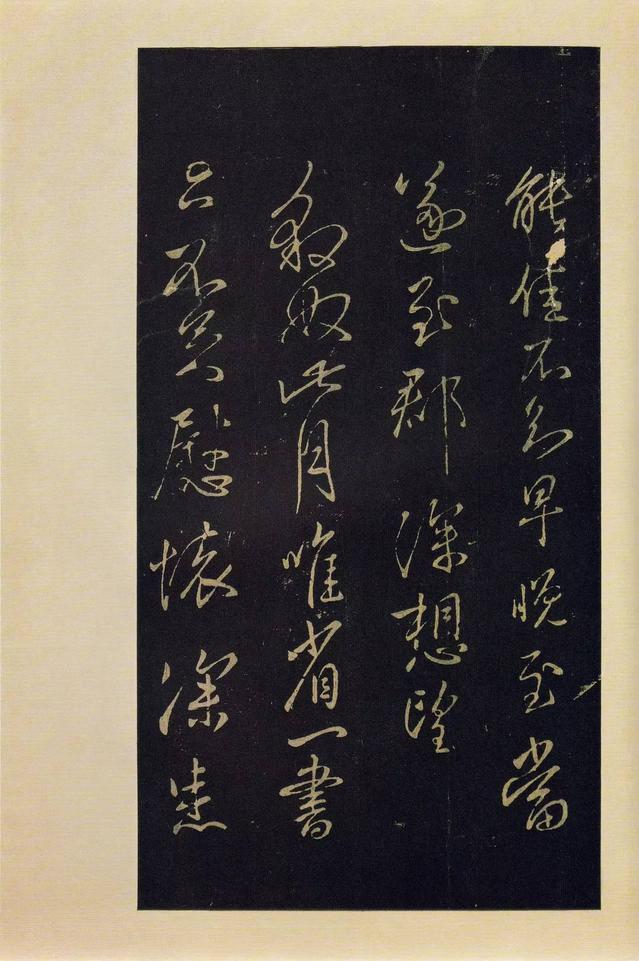 能佳不知早晚至當
遂至郡深想望
敘此月唯省一書
亦不足慰懷深患